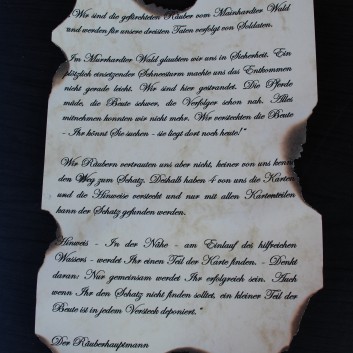 „Wir sind die gefürchteten Räuber vom Mainhardter Wald
und werden für unsere dreisten Taten verfolgt von Soldaten.
Im Murrhardter Wald glaubten wir uns in Sicherheit. Ein
plötzlich einsetzender Schneesturm machte uns das Entkommen
nicht gerade leicht. Wir sind hier gestrandet. Die Pferde
müde, die Beute schwer, die Verfolger schon nah. Alles
mitnehmen konnten wir nicht mehr. Wir versteckten die Beute
- Ihr könnt Sie suchen - sie liegt dort noch heute!"
Wir Räubern vertrauten uns aber nicht, keiner von uns kennt
den Weg zum Schatz. Deshalb haben 4 von uns die Karten
und die Hinweise versteckt und nur mit allen Kartenteilen
kann der Schatz gefunden werden.
Hinweis - In der Nähe - am Einlauf des hilfreichen
Wassers - werdet Ihr einen Teil der Karte finden. - Denkt
daran: Nur gemeinsam werdet Ihr erfolgreich sein. Auch
wenn Ihr den Schatz nicht finden solltet, ein kleiner Teil der
Beute ist in jedem Versteck deponiert."
Der Räuberhauptmann